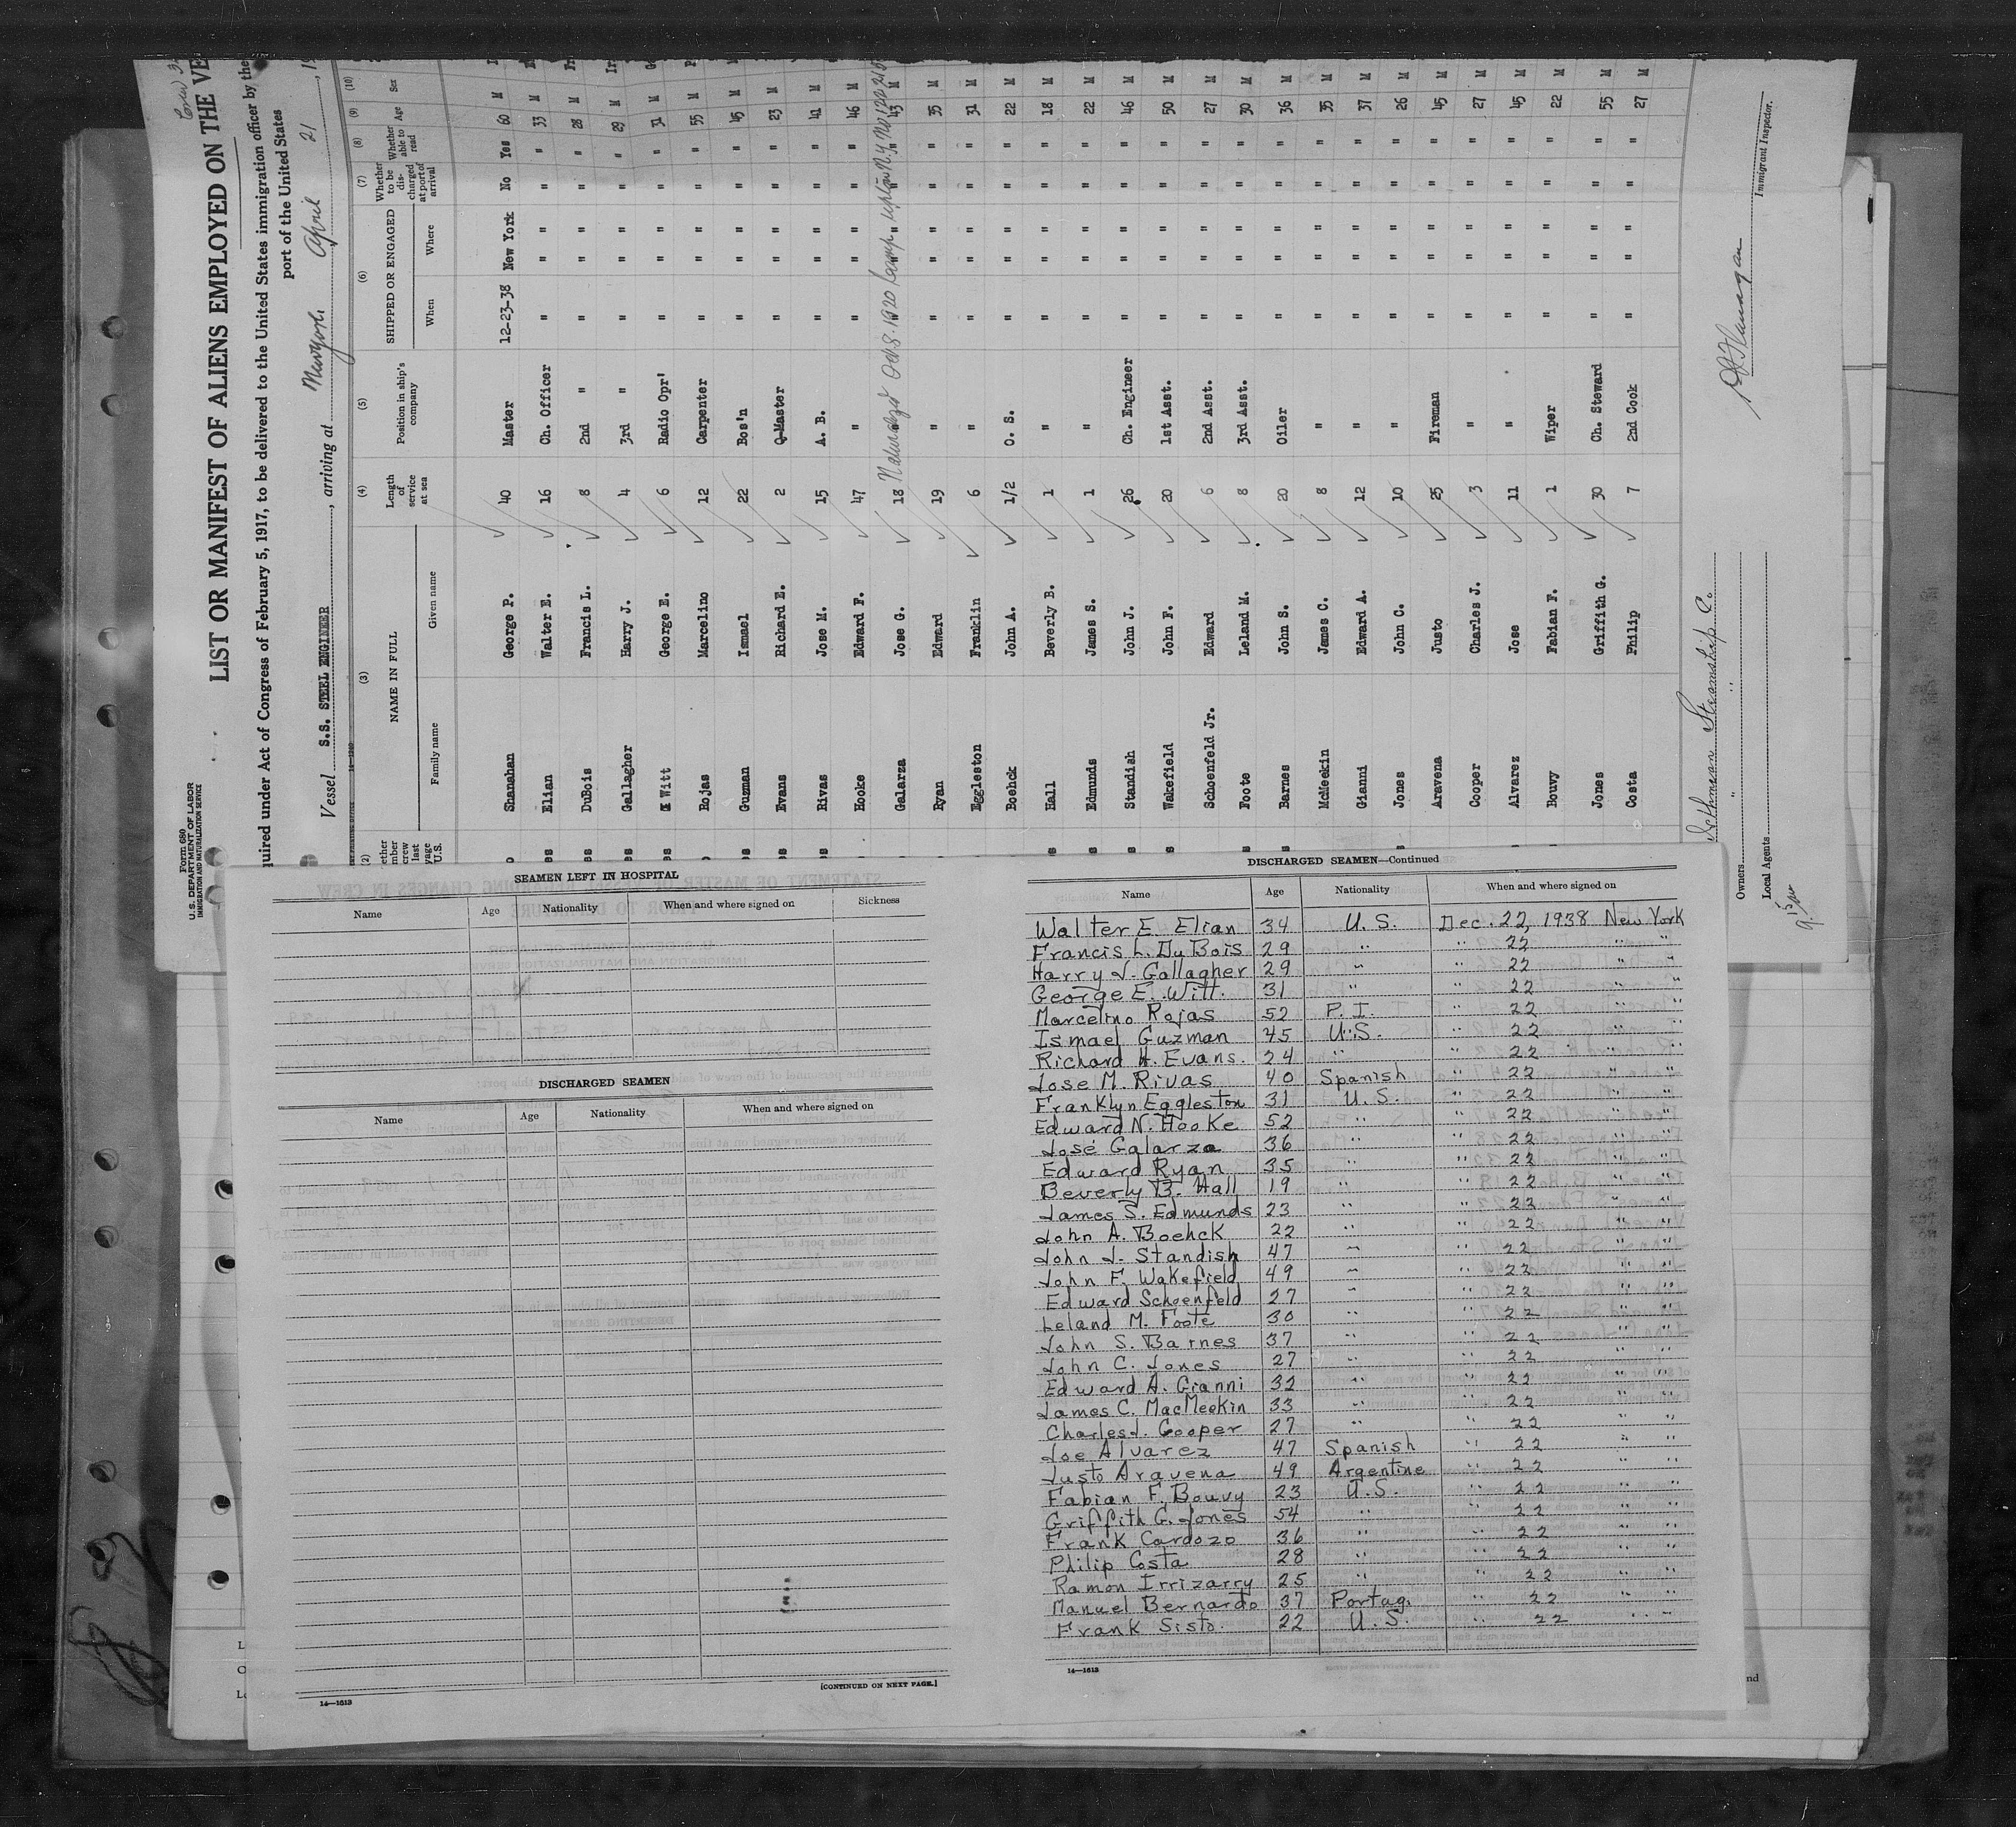 Form 680
U. S. DEPARTMENT OF LABOR
IMMIGRATION AND NATURALIZATION SERVICE
LIST OR MANIFEST OF ALIENS EMPLOYED ON THE VE
quired under Act of Congress of February 5, 1917, to be delivered to the United States immigration officer by the
port of the United States
Vessel S.S. STEEL ENGINEER, arriving at Newyork April 21, 19
(2) (3) (4) (5) (6) (7) (8) (9) (10)
NAME IN FULL
Family name Given name
Length of service at sea
Position in ship's company
SHIPPED OR ENGAGED
When Where
Whether to be discharged at port of arrival
Whether able to read
Age
Sex
Shanahan George P. 40 Master 12-23-38 New York No Yes 60 M
Elian Walter E. 16 Ch. Officer " " " " " 33 M
DuBois Francis L. 8 2nd " " " " " " 28 M
Gallagher Harry J. 4 3rd " " " " " " 29 M
Witt George E. 6 Radio Opr' " " " " " 31 M
Rojas Marcelino 12 Carpenter " " " " " 55 M
Guzman Ismael 22 Bos'n " " " " " 45 M
Evans Richard E. 2 Q-Master " " " " " 23 M
Rivas Jose M. 15 A. B. " " " " " 41 M
Hooke Edward F. 47 " " " " " " 46 M
Galarza Jose G. 18 " " " " " " 43 M
Ryan Edward 19 " " " " " " 35 M
Eggleston Franklin 6 " " " " " " 31 M
Boehck John A. 1/2 O. S. " " " " " 22 M
Hall Beverly B. 1 " " " " " " 18 M
Edmunds James S. 1 " " " " " " 22 M
Standish John J. 26 Ch. Engineer " " " " " 46 M
Wakefield John F. 20 1st Asst. " " " " " 50 M
Schoenfeld Jr. Edward 6 2nd Asst. " " " " " 27 M
Foote Leland M. 8 3rd Asst. " " " " " 30 M
Barnes John S. 20 Oiler " " " " " 36 M
McMeekin James C. 8 " " " " " " 35 M
Gianni Edward A. 12 " " " " " " 37 M
Jones John C. 10 " " " " " " 26 M
Aravena Justo 25 Fireman " " " " " 45 M
Cooper Charles J. 3 " " " " " " 27 M
Alvarez Jose 11 " " " " " " 45 M
Bouvy Fabian F. 1 Wiper " " " " " 22 M
Jones Griffith G. 30 Ch. Steward " " " " " 55 M
Costa Philip 7 2nd Cook " " " " " 27 M
Isthmian Steamship Co.
Owners
Local Agents
Immigrant Inspector.
SEAMEN LEFT IN HOSPITAL
Name Age Nationality When and where signed on Sickness
DISCHARGED SEAMEN
Name Age Nationality When and where signed on
14—1613
[CONTINUED ON NEXT PAGE.]
DISCHARGED SEAMEN—Continued
Name Age Nationality When and where signed on
Walter E. Elian 34 U. S. Dec. 22, 1938 New York
Francis L. Du Bois 29 " " 22 " "
Harry J. Gallagher 29 " " 22 " "
George E. Witt. 31 " " 22 " "
Marcelino Rojas 52 P. I. " 22 " "
Ismael Guzman 45 U.S. " 22 " "
Richard H. Evans. 24 " " 22 " "
Jose M. Rivas 40 Spanish " 22 " "
Franklyn Eggleston 31 U. S. " 22 " "
Edward N. Hooke 52 " " 22 " "
José Galarza 36 " " 22 " "
Edward Ryan 35 " " 22 " "
Beverly B. Hall 19 " " 22 " "
James S. Edmunds 23 " " 22 " "
John A. Boehck 22 " " 22 " "
John J. Standish 47 " " 22 " "
John F. Wakefield 49 " " 22 " "
Edward Schoenfeld 27 " " 22 " "
Leland M. Foote 30 " " 22 " "
John S. Barnes 37 " " 22 " "
John C. Jones 27 " " 22 " "
Edward A. Gianni 32 " " 22 " "
James C. MacMeekin 33 " " 22 " "
Charles J. Cooper 27 " " 22 " "
Joe Alvarez 47 Spanish " 22 " "
Justo Aravena 49 Argentine " 22 " "
Fabian F. Bouvy 23 U.S. " 22 " "
Griffith G. Jones 54 " " 22 " "
Frank Cardozo 36 " " 22 " "
Philip Costa 28 " " 22 " "
Ramon Irrizarry 25 " " 22 " "
Manuel Bernardo 37 Portug. " 22 " "
Frank Sisto. 22 U. S. " 22 " "
14—1613